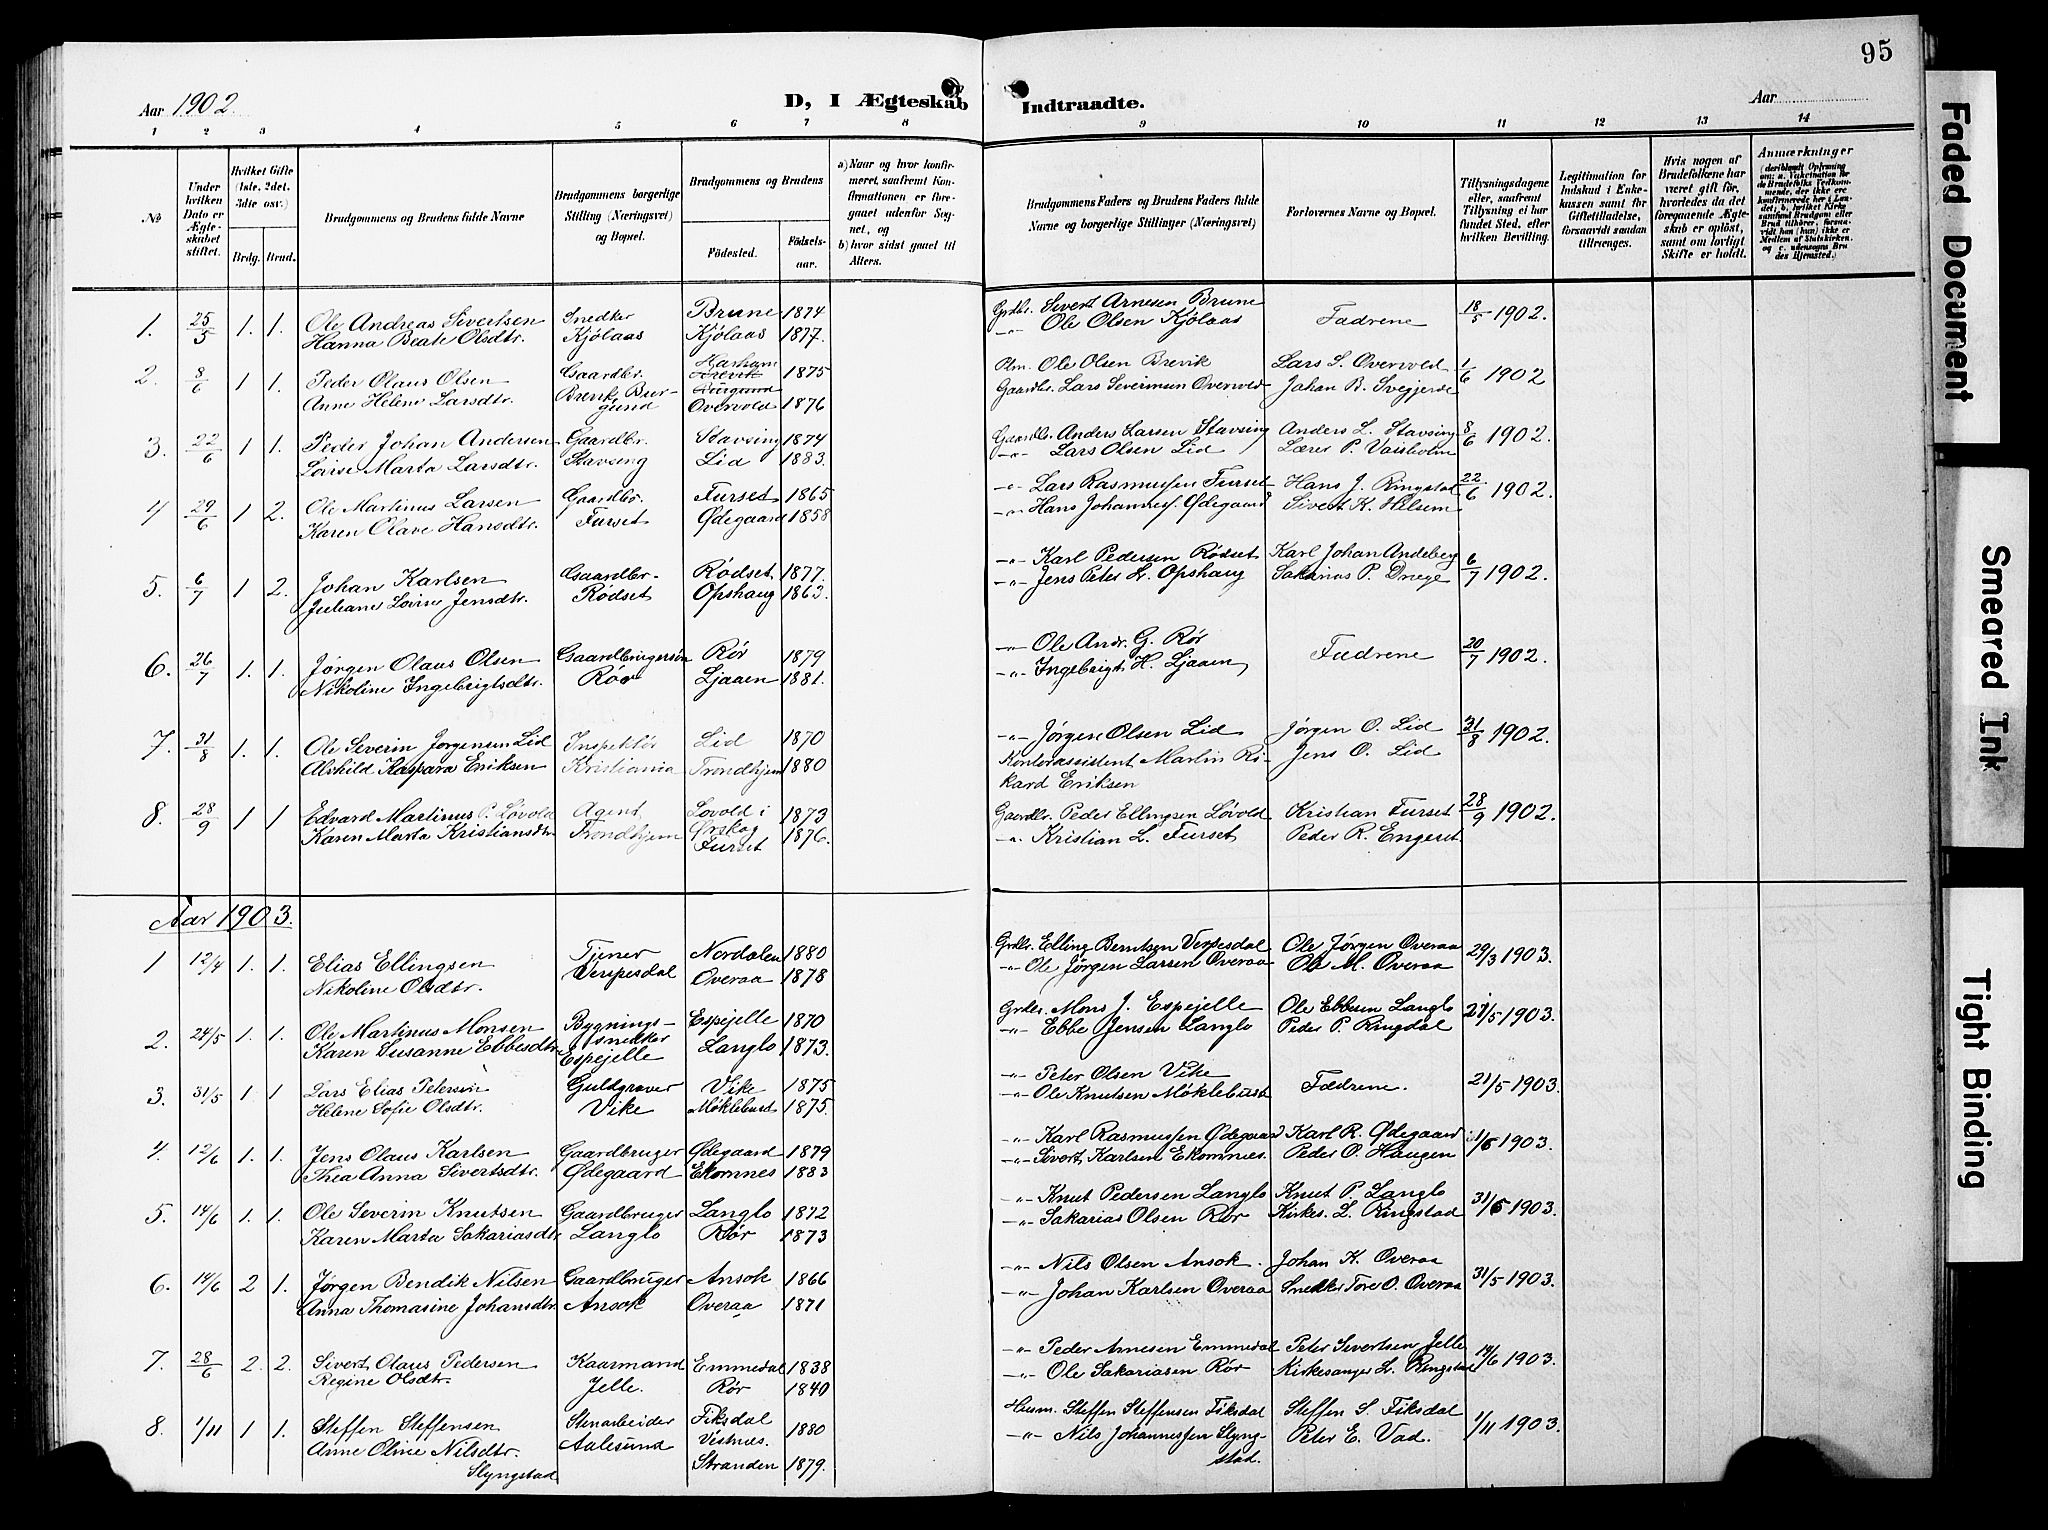 95
Aar 1902.
D, I Ægteskab Indtraadte.
Aar
1 2 3 4 5 6 7 8 9 10 11 12 13 14
№
Under hvilken Dato er Ægteskabet stiftet.
Hvilket Gifte (1ste, 2det, 3die osv.)
Brdg. Brud.
Brudgommens og Brudens fulde Navne
Brudgommens borgerlige Stilling (Næringsvei) og Bopæl.
Brudgommens og Brudens
Fødested.
Fødselsaar.
a) Naar og hvor konfirmeret, saafremt Konfirmationen er foregaaet udenfor Sognet, og
b) hvor sidst gaaet til Alters.
Brudgommens Faders og Brudens Faders fulde Navne og borgerlige Stillinger (Næringsvei)
Forlovernes Navne og Bopæl.
Tillysningsdagene eller, saafremt Tillysning ei har fundet Sted, efter hvilken Bevilling.
Legitimation for Indskud i Enkekassen samt for Giftetilladelse, forsaavidt saadan tiltrænges.
Hvis nogen af Brudefolkene har været gift før, hvorledes da det foregaaende Ægteskab er opløst, samt om lovligt Skifte er holdt.
Anmærkninger
1. 25/5 1. 1. Ole Andreas Sivertsen Snedker Brune 1874 Grdbr. Sivert Arnesen Brune Fædrene 18/5 1902.
Hanna Beate Olsdtr. Kjölaas Kjölaas 1877. -"- Ole Olsen Kjölaas
2. 8/6 1 1. Peder Olaus Olsen Gaardbr. Harham 1875 Ole Olsen Brevik Lars S. Overvold 1/6 1902
Anne Helene Larsdtr. Overvold 1876 Gaardbr. Lars Severinsen Overvold Johan B.
3. 22/6 1 1. Peder Johan Andersen Gaardbr. Stavsing 1874 Gaardbr. Anders Larsen Stavsing Anders L. Stavsing 8/6 1902.
Lovise Marta Larsdtr. Stavsing Lid 1883. -"- Lars Olsen Lid Lærer P. Vaisholm
4 29/6 1 2. Ole Martinus Larsen Gaardbr. Furset 1865 -"- Lars Rasmussen Furset Hans J. Ringstad 22/6 1902.
Karen Olave Hansdtr. Furset Ødegaard 1858 -"- Hans Johannesf. Ødegaard Sivert K. Hilsem
5. 6/7 1 2. Johan Karlsen Gaardbr. Rödset 1877. -"- Karl Pedersen Rödset Karl Johan Andeberg 6/7 1902.
Juliane Lovise Jensdtr. Rödset Opshaug 1863. -"- Jens Peter L. Opshaug Sakarias P. Drege
6. 26/7 1. 1. Jørgen Olaus Olsen Gaardbrugersøn Rör 1879 -"- Ole Andr. G. Rör Fædrene 20/7 1902.
Nikoline Ingebrigtsdtr. Rör Ljaaen 1881. -"- Ingebrigt H. Ljaaen
7. 31/8 1. 1. Ole Severin Jørgensen Lid Inspektör Lid 1870 -"- Jørgen Olsen Lid Jørgen O. Lid 31/8 1902.
Alshild Kaspara Eriksen Kristiania Trondhjem 1880 Kontorassistent Martin Rikard Eriksen Jens O. Lid
8. 28/9 1 1 Edvard Martinus P. Lövold Agent Lovold i Ørskog 1873 Gaardbr. Peder Ellingsen Lövold Kristian Furset 28/9 1902.
Karen Marta Kristiansdtr Trondhjem Furset 1876. -"- Kristian L. Furset Peder R. Engeset.
Aar 1903.
1 12/4 1. 1. Elias Ellingsen Tjener Nordalen 1880 Grdbr. Elling Berntsen Verpesdal Ole Jørgen Overaa 29/3 1903.
Nikoline Olsdtr. Verpesdal Overaa 1878 -"- Ole Jørgen Larsen Overaa Ole M. Overaa
2. 24/5 1. 1. Ole Martinus Monsen Bygningssnedker Espejelle 1870 Grdbr. Mons J. Espejelle Ole Ebbesen Langlo /5 1903.
Karen Susanne Ebbesdtr. Espejelle Langlo 1873. -"- Ebbe Jensen Langlo Peder P. Ringdal
3. 31/5 1. 1 Lars Elias Petersen Guldgraver Vike 1875 -"- Peter Olsen Vike Fædrene. 21/5 1903.
Helene Sofie Olsdtr. Vike Möklebust 1875. -"- Ole Knutsen Möklebust
4. 12/6 1. 1. Jens Olaus Karlsen Gaardbruger Ødegaard 1879 -"- Karl Rasmussen Ødegaard Karl R. Ødegaard 31/5 1903.
Thea Anna Sivertsdtr. Ødegaard Ekornnes 1883 -"- Sivert Karlsen Ekornnes. Peder O. Haugen
5. 14/6 1. 1. Ole Severin Knutsen Gaardbruger Langlo 1872 -"- Knut Pedersen Langlo Knut P. Langlo 31/5 1903.
Karen Marta Sakariasdtr. Langlo Rör 1873 -"- Sakarias Olsen Rör Kirkes. L. Ringstad
6. 14/6 2 1. Jørgen Bendik Nilsen Gaardbruger Ansok 1866 -"- Nils Olsen Ansok. Johan K. Overaa 31/5 1903.
Anna Thomasine Johansdtr. Ansok Overaa 1871 -"- Johan Karlsen Overaa Snedker Tore O. Overaa
7. 28/6 2. 2. Sivert Olaus Pedersen Kaarmand Emmedal 1838 -"- Peder Arnesen Emmedal Peter Sivertsen Jelle 14/6 1903.
Regine Olsdtr. Jelle. Rör 1840 -"- Ole Sakariasen Rör Kirkesanger L. Ringstad
8. 1/11 1 1. Steffen Steffensen Stenarbeider Fiksdal Vestnes. 1880 Husm. Steffen Steffensen Fiksdal Steffen S. Fiksdal 1/11 1903.
Anne Oline Nilsdtr. Slyngstad Aalesund Stranden 1879. -"- Nils Johannessen Slyngstad. Peter E. Vad.
Faded Document
Smeared Ink
Tight Binding